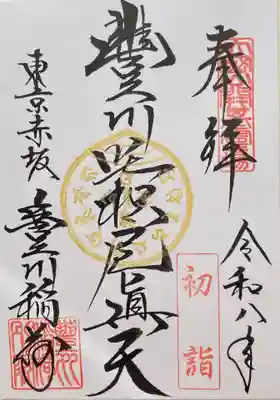 奉拝
令和八年
初詣
豐川吒枳尼眞天
東京赤坂
豐川稲荷